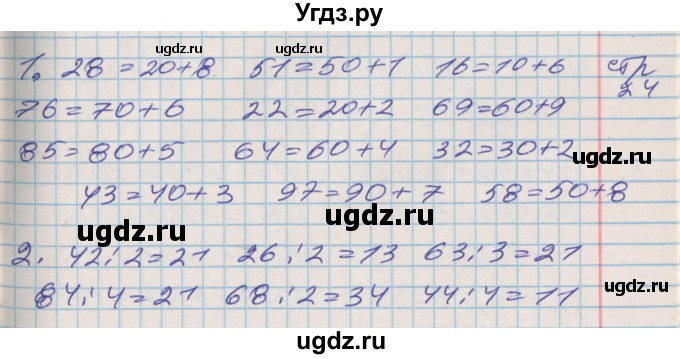 Угдз.ру
ugdz.ru ugdz.ru
1. 28 = 20+8 51=50+1 16=10+6 стр 24
76=70+6 22=20+2 69=60+9
85=80+5 64=60+4 32=30+2
ugdz.ru
43=40+3 97=90+7 58=50+8
ugdz.ru ugdz.ru ugdz.ru
2. 42:2=21 26:2=13 63:3=21
ugdz.ru
84:4=21 68:2=34 44:4=11
ugdz.ru ugdz.ru
ugdz.ru